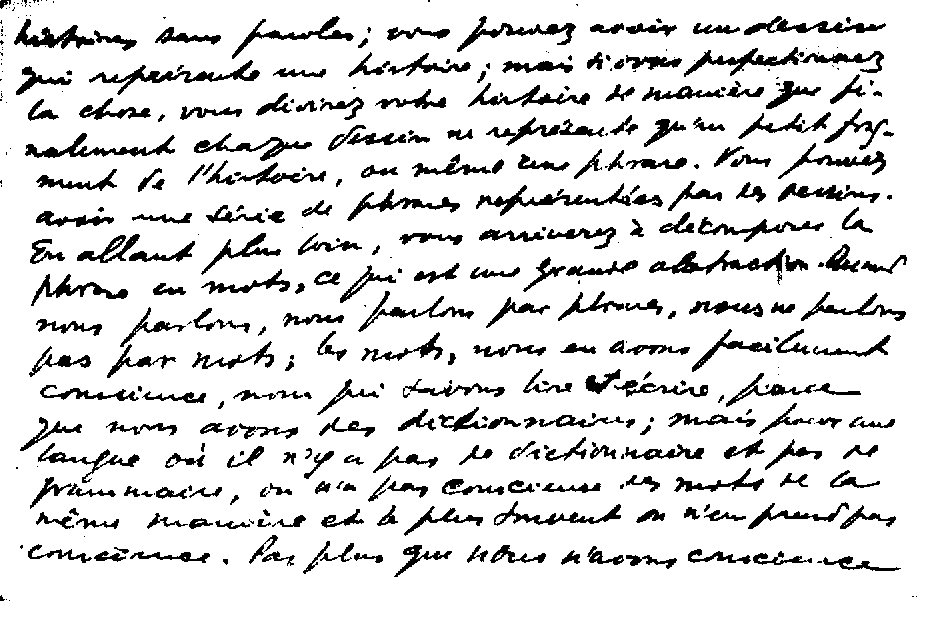 histoires sans paroles; vous pouvez avoir un dessin
qui représente une histoire; mais si vous perfectionnez
la chose, vous divisez votre histoire de manière que fi-
nalement chaque dessin ne représente qu'un petit frag-
ment de l'histoire, ou même une phrase. Vous pouvez
avoir une série de phrases représentées par des dessins.
En allant plus loin, vous arriverez à décomposer la
phrase en mots, ce qui est une grande abstraction. Quand
nous parlons, nous parlons par phrases, nous ne parlons
pas par mots; les mots, nous en avons facilement
conscience, nous qui savons lire et écrire, parce
que nous avons des dictionnaires; mais pour une
langue où il n'y a pas de dictionnaire et pas de
grammaire, on n'a pas conscience des mots de la
même manière et le plus souvent on n'en prend pas
conscience. Pas plus que nous n'avons conscience